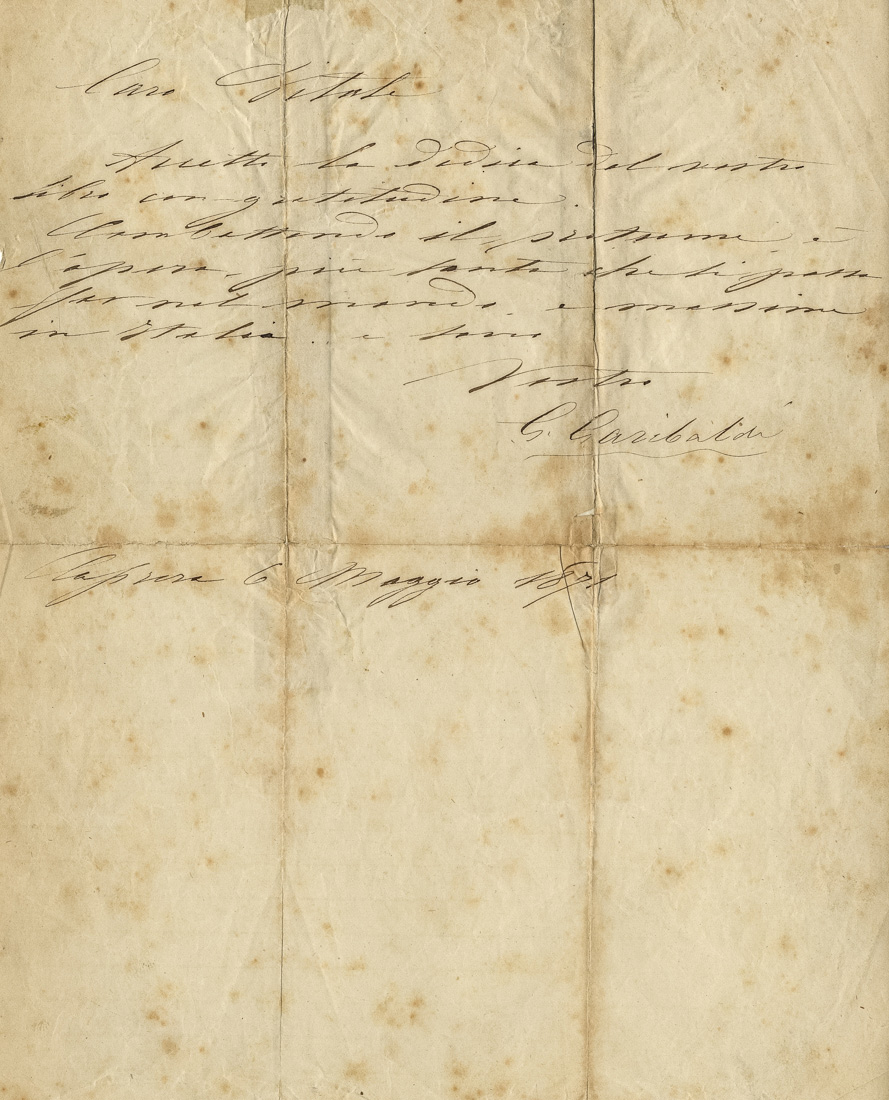 Caro Vitale
Accetto la dedica del vostro
libro con gratitudine.
Combattendo il pretume è
l'opera più santa che si possa
far nel mondo e massime
in Italia e sono
Vostro
G. Garibaldi
Caprera 6 Maggio 1871